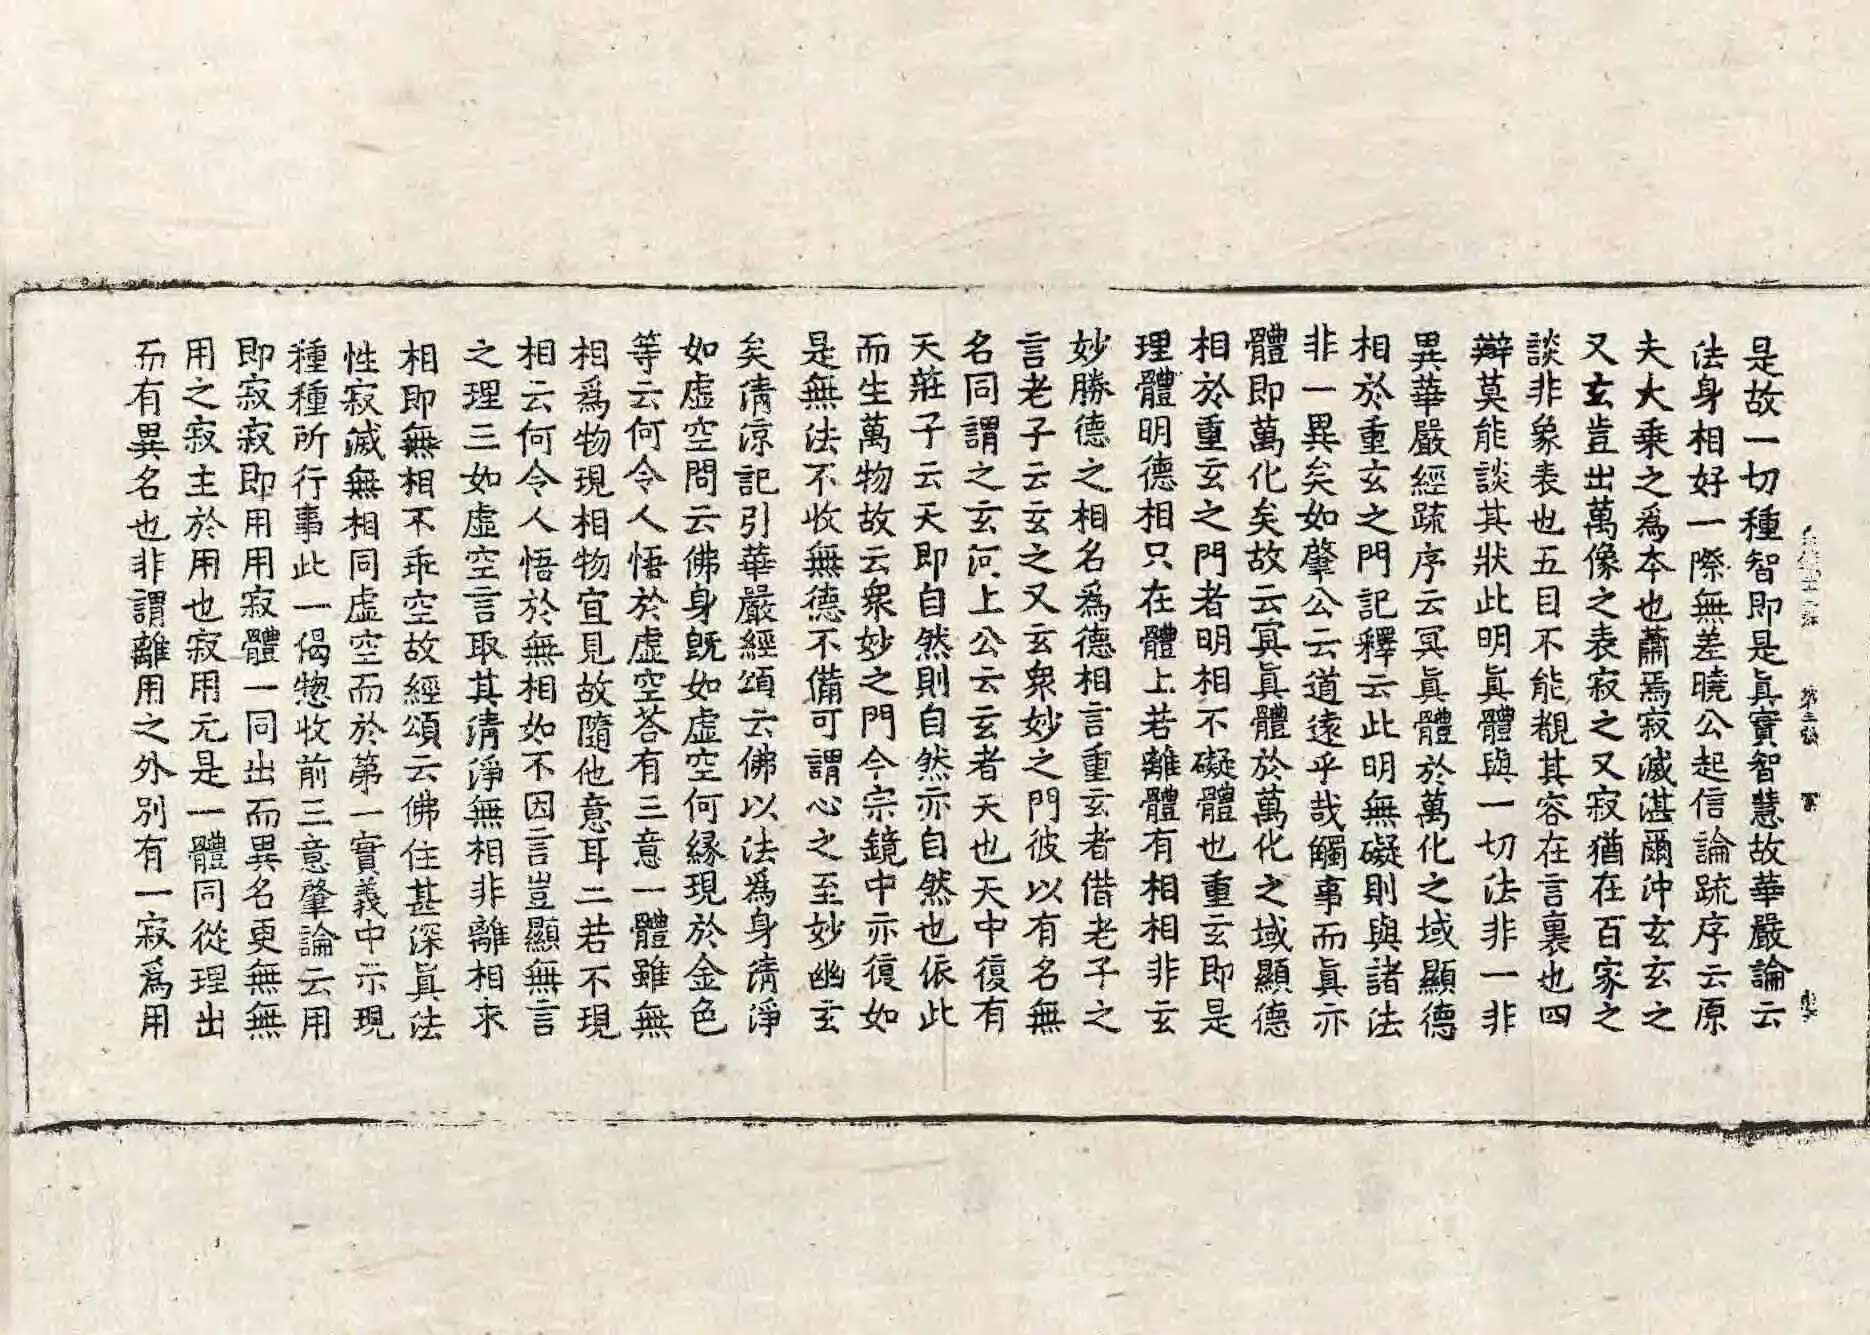 是故一切種智即是眞實智慧故華嚴論云
法身相好一際無差曉公起信論疏序云原
夫大乘之爲本也蕭焉寂滅湛爾沖玄玄之
又玄豈出萬像之表寂之又寂猶在百家之
談非象表也五目不能覩其容在言裏也四
辯莫能談其狀此明眞體與一切法非一非
異華嚴經疏序云冥眞體於萬化之域顯德
相於重玄之門記釋云此明無礙則與諸法
非一異矣如肇公云道遠乎哉觸事而眞亦
體即萬化矣故云寘眞體於萬化之域顯德
相於重玄之門者明相不礙體也重玄即是
理體明德相只在體上若離體有相相非玄
妙勝德之相名爲德相言重玄者借老子之
言老子云玄之又玄衆妙之門彼以有名無
名同謂之玄河上公云玄者天也天中復有
天莊子云天即自然則自然亦自然也依此
而生萬物故云衆妙之門今宗鏡中亦復如
是無法不收無德不備可謂心之至妙幽玄
矣清涼記引華嚴經頌云佛以法爲身清淨
如虛空問云佛身旣如虛空何緣現於金色
等云何令人悟於虛空荅有三意一體雖無
相爲物現相物宜見故隨他意耳二若不現
相云何令人悟於無相如不因言豈顯無言
之理三如虛空言取其清淨無相非離相來
相即無相不乖空故經頌云佛住甚深眞法
性寂滅無相同虛空而於第一實義中示現
種種所行事此一偈惣收前三意肇論云用
即寂寂即用用寂體一同出而異名更無無
用之寂主於用也寂用元是一體同從理出
而有異名也非謂離用之外別有一寂爲用